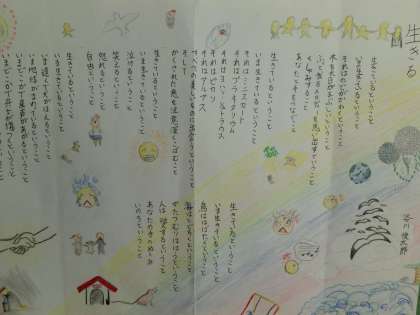 生きる
谷川俊太郎
生きているということ
いま生きているということ
それはのどがかわくということ
木もれ陽がまぶしいということ
ふっと或るメロディを思い出すということ
くしゃみすること
あなたと手をつなぐこと
生きているということ
いま生きているということ
それはミニスカート
それはプラネタリウム
それはヨハン・シュトラウス
それはピカソ
それはアルプス
すべての美しいものに出会うということ
そして
かくされた悪を注意深くこばむこと
生きているということ
いま生きているということ
泣けるということ
笑えるということ
怒れるということ
自由ということ
生きているということ
いま生きているということ
いま遠くで犬がほえるということ
いま地球がまわっているということ
いまどこかで産声があがるということ
いまどこかで兵士が傷つくということ
生きているということ
いま生きているということ
鳥ははばたくということ
海はとどろくということ
かたつむりははうということ
人は愛するということ
あなたの手のぬくみ
いのちということ